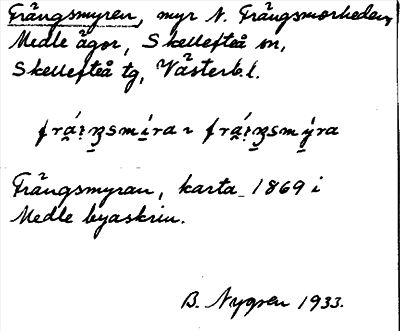 Frängsmyren, myr N. Frängsmorheden,
Medle ägor, Skellefteå sn,
Skellefteå tg, Västerb. l.
Frängsmyran, karta 1869 i
Medle byaskrin.
B. Nygren 1933.